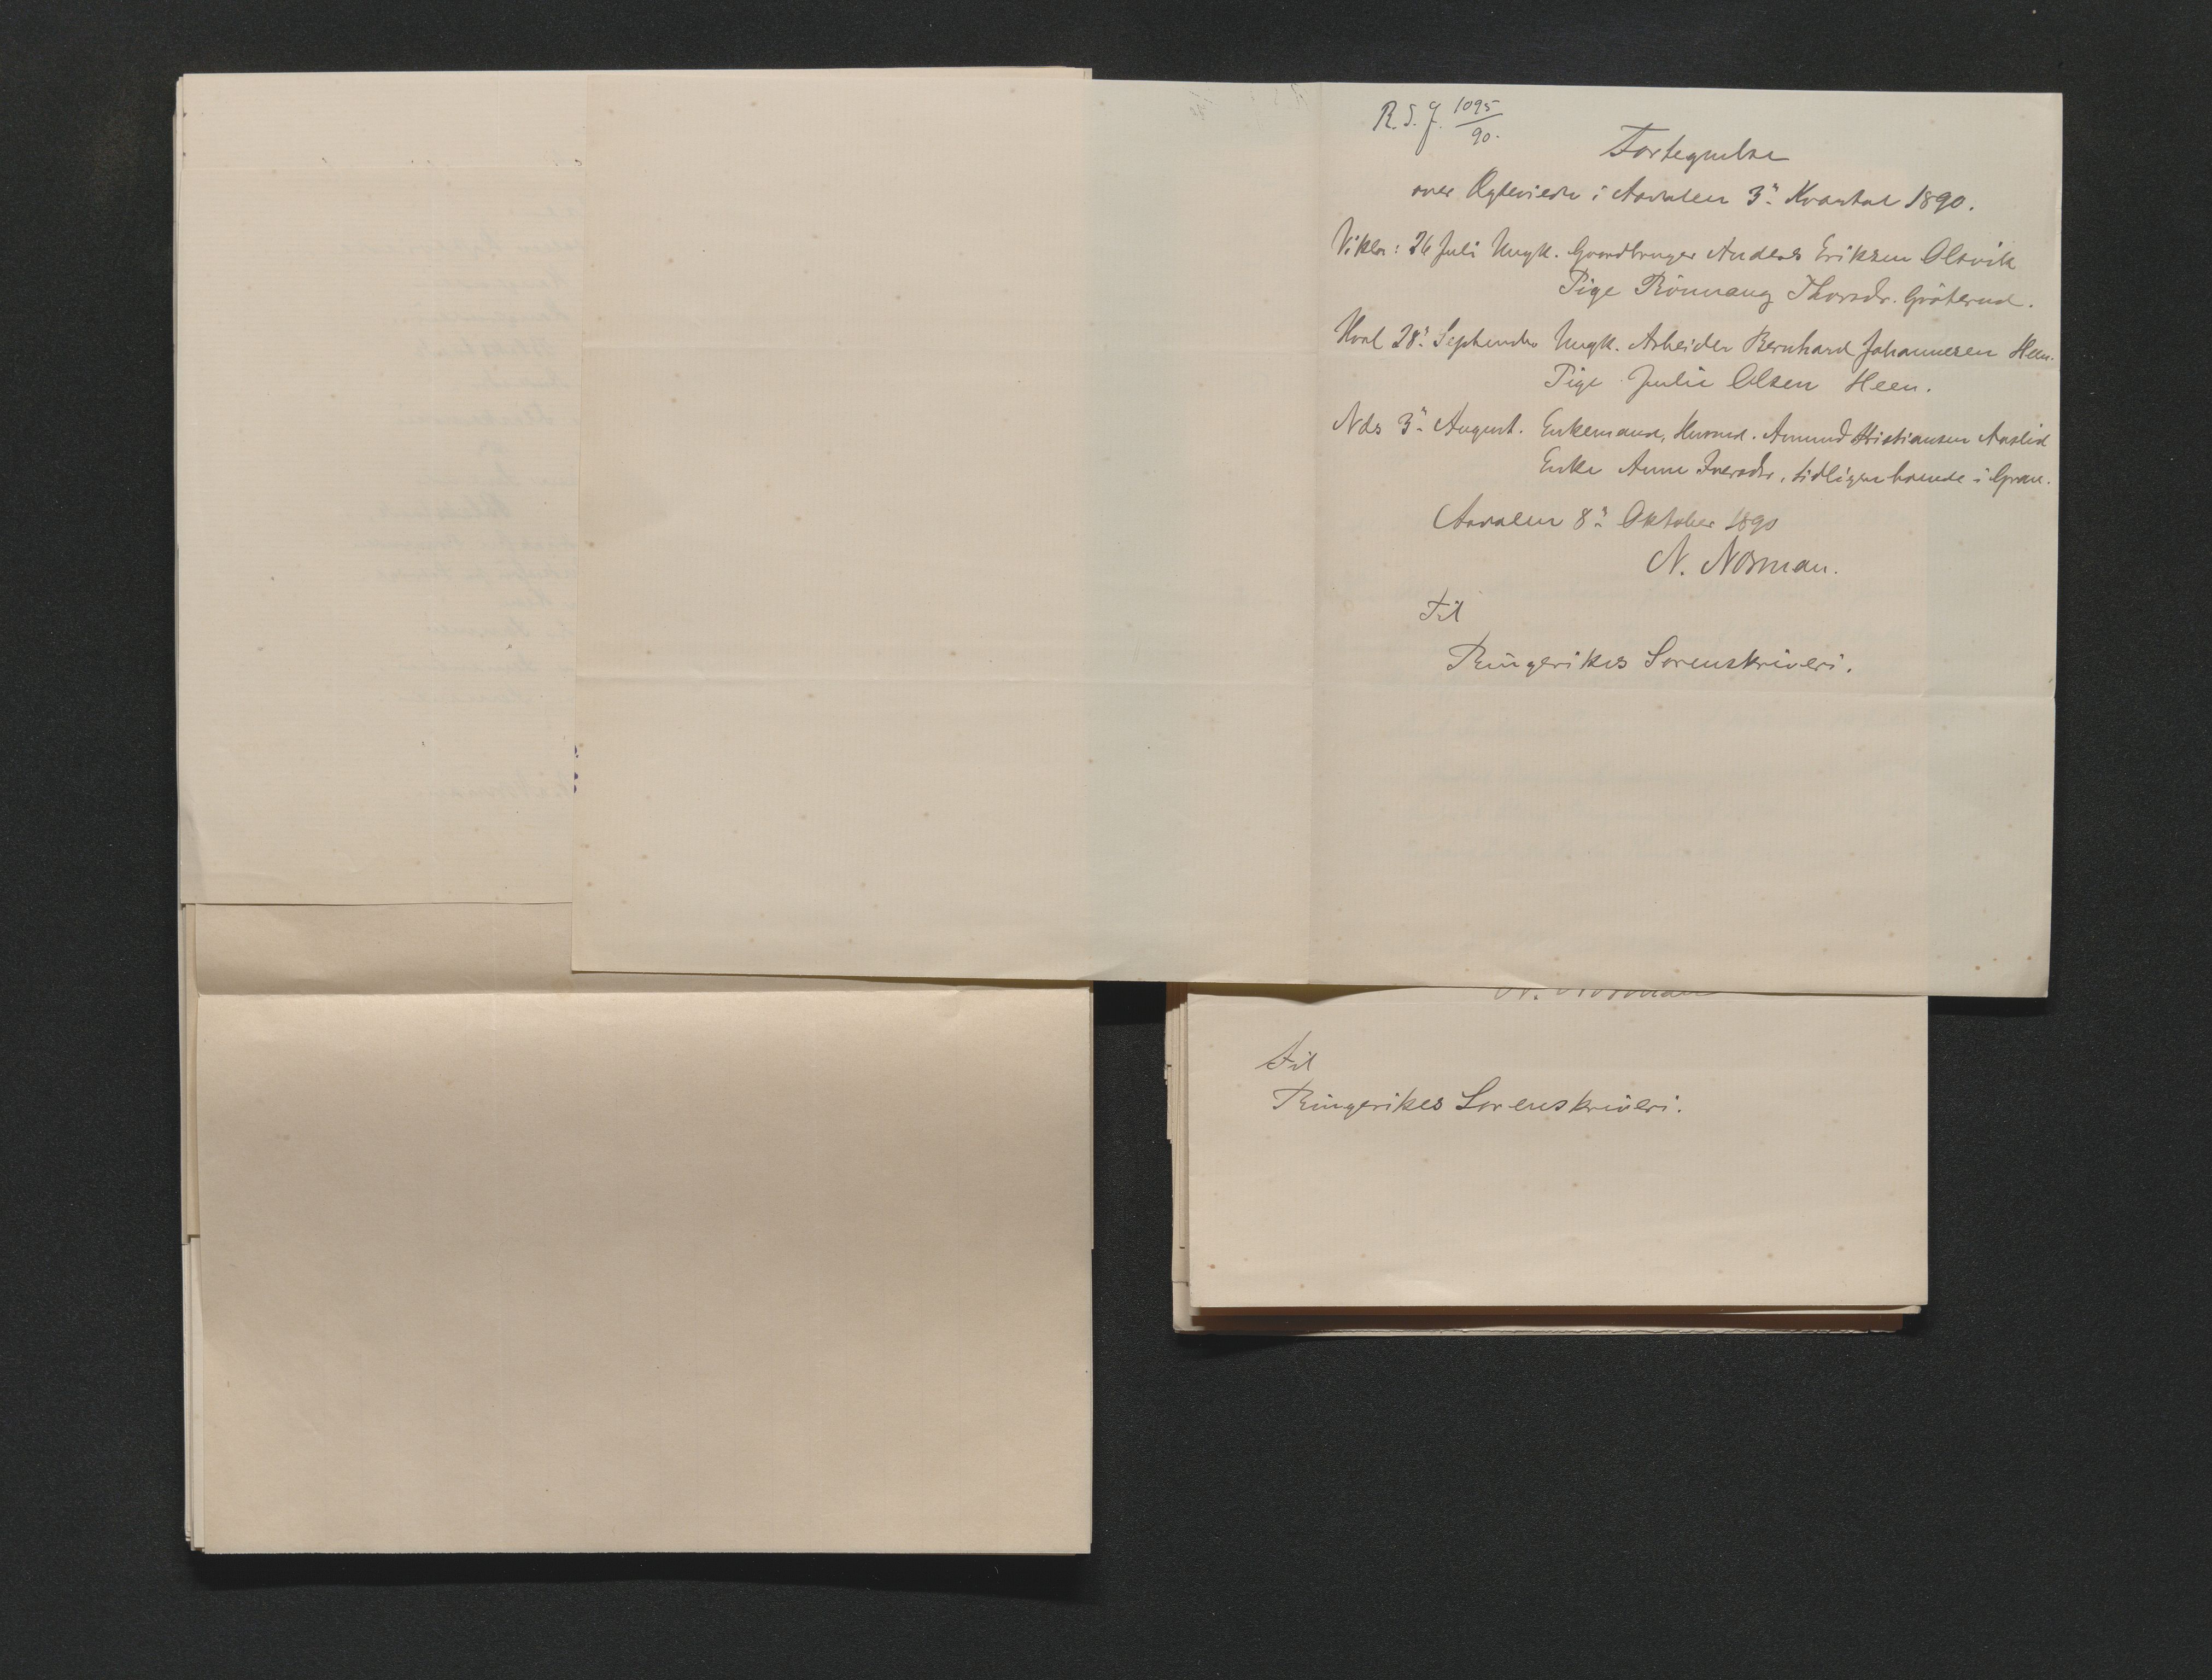 R. S. J. 1095/90.
Fortegnelse
over Ægteviede i Aadalen 3die Kvartal 1890.
Viker: 26 Juli Ungk. Gaardbruger Anders Eriksen Olsvik
Pige Rönnaug Thorsdr. Gröterud.
Hval 28de September Ungk. Arbeider Bernhard Johannesen Heen.
Pige Julie Olsen Heen.
Nds 3die August. Enkemand, Husmd. Amund Kristiansen Aaslid
Enke Anne Iversdr, tidligere boende i Gran.
Aadalen 8de Oktober 1890
N. Norman.
Til
Ringerikes Sorenskriveri.
N. Norman
Til
Ringerikes Sorenskriveri.